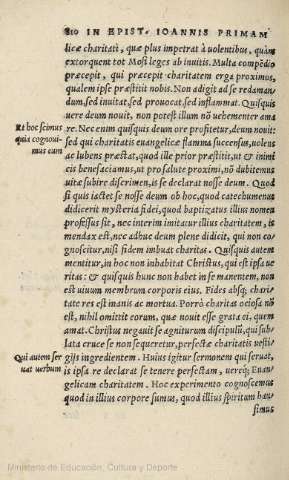 810 IN EPIST. IOANNIS PRIMAM
licæ charitati, quæ plus impetrat à uolentibus, quàm
extorquent tot Mosi leges ab inuitis. Multa compẽdio
præcepit, qui præcepit charitatem erga proximos,
qualem ipse præstitit nobis. Non adigit ad se redaman
dum, sed inuitat, sed prouocat, sed inflammat. Quisquis
uere deum nouit, non potest illum nõ uehementer ama
Et hoc scimus
quia cognoui-
mus eum
re. Nec enim quisquis deum ore profitetur, deum nouit:
sed qui charitatis euangelicæ flamma succensus, uolens
ac lubens præstat, quod ille prior præstitit, ut & inimi
cis benefaciamus, ut pro salute proximi, nõ dubitemus
uitæ subire discrimen, is se declarat nosse deum. Quod
si quis iactet se nosse deum ob hoc, quod catechumenus
didicerit mysteria fidei, quod baptizatus illius nomen
professus sit, nec interim imitatur illius charitatem, is
mendax est, nec adhuc deum plene didicit, qui non co-
gnoscitur, nisi fidem imbuat charitas. Quisquis autem
mentitur, in hoc non inhabitat Christus, qui est ipsa ue
ritas: & quisquis hunc non habet in se manentem, non
est uiuum membrum corporis eius. Fides absq; chari
tate res est inanis ac mortua. Porrò charitas ociosa nõ
est, nihil omittit eorum, quæ nouit esse grata ei, quem
amat. Christus negauit se agniturum discipulũ, qui sub
lata cruce se non sequeretur, perfectæ charitatis uesti-
Qui autem ser
uat uerbum
gijs ingredientem. Huius igitur sermonem qui seruat,
is ipsa re declarat se tenere perfectam, uereq; Euan-
gelicam charitatem. Hoc experimento cognoscemus
quod in illius corpore sumus, quod illius spiritum hau
simus
Ministerio de Educación, Cultura y Deporte